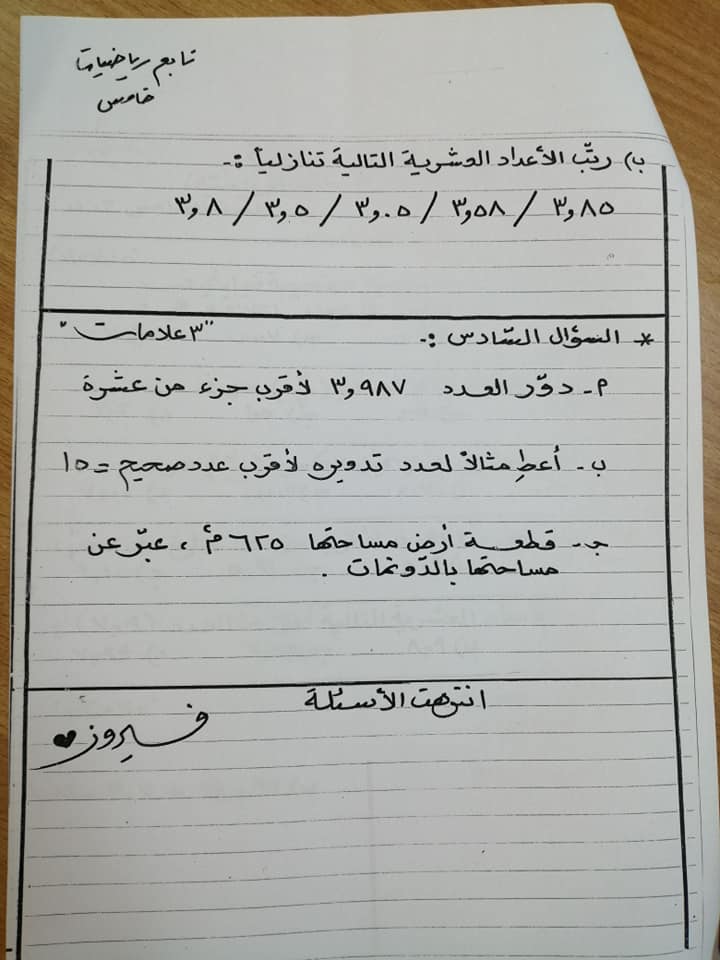 تابع رياضيات
خامس
ب) رتّب الأعداد العشرية التالية تنازلياً :-
٣,٨٥ / ٣,٥٨ / ٣,٠٥ / ٣,٥ / ٣,٨
* السؤال السّادس :- "٣ علامات"
أ- دوّر العدد ٣,٩٨٧ لأقرب جزء من عشرة
ب- أعطِ مثالاً لعدد تدويره لأقرب عدد صحيح = ١٥
جـ- قطعة أرض مساحتها ٦٢٥ م٢ ، عبّر عن
مساحتها بالدّونمات .
انتهت الأسئلة
فيروز ♥